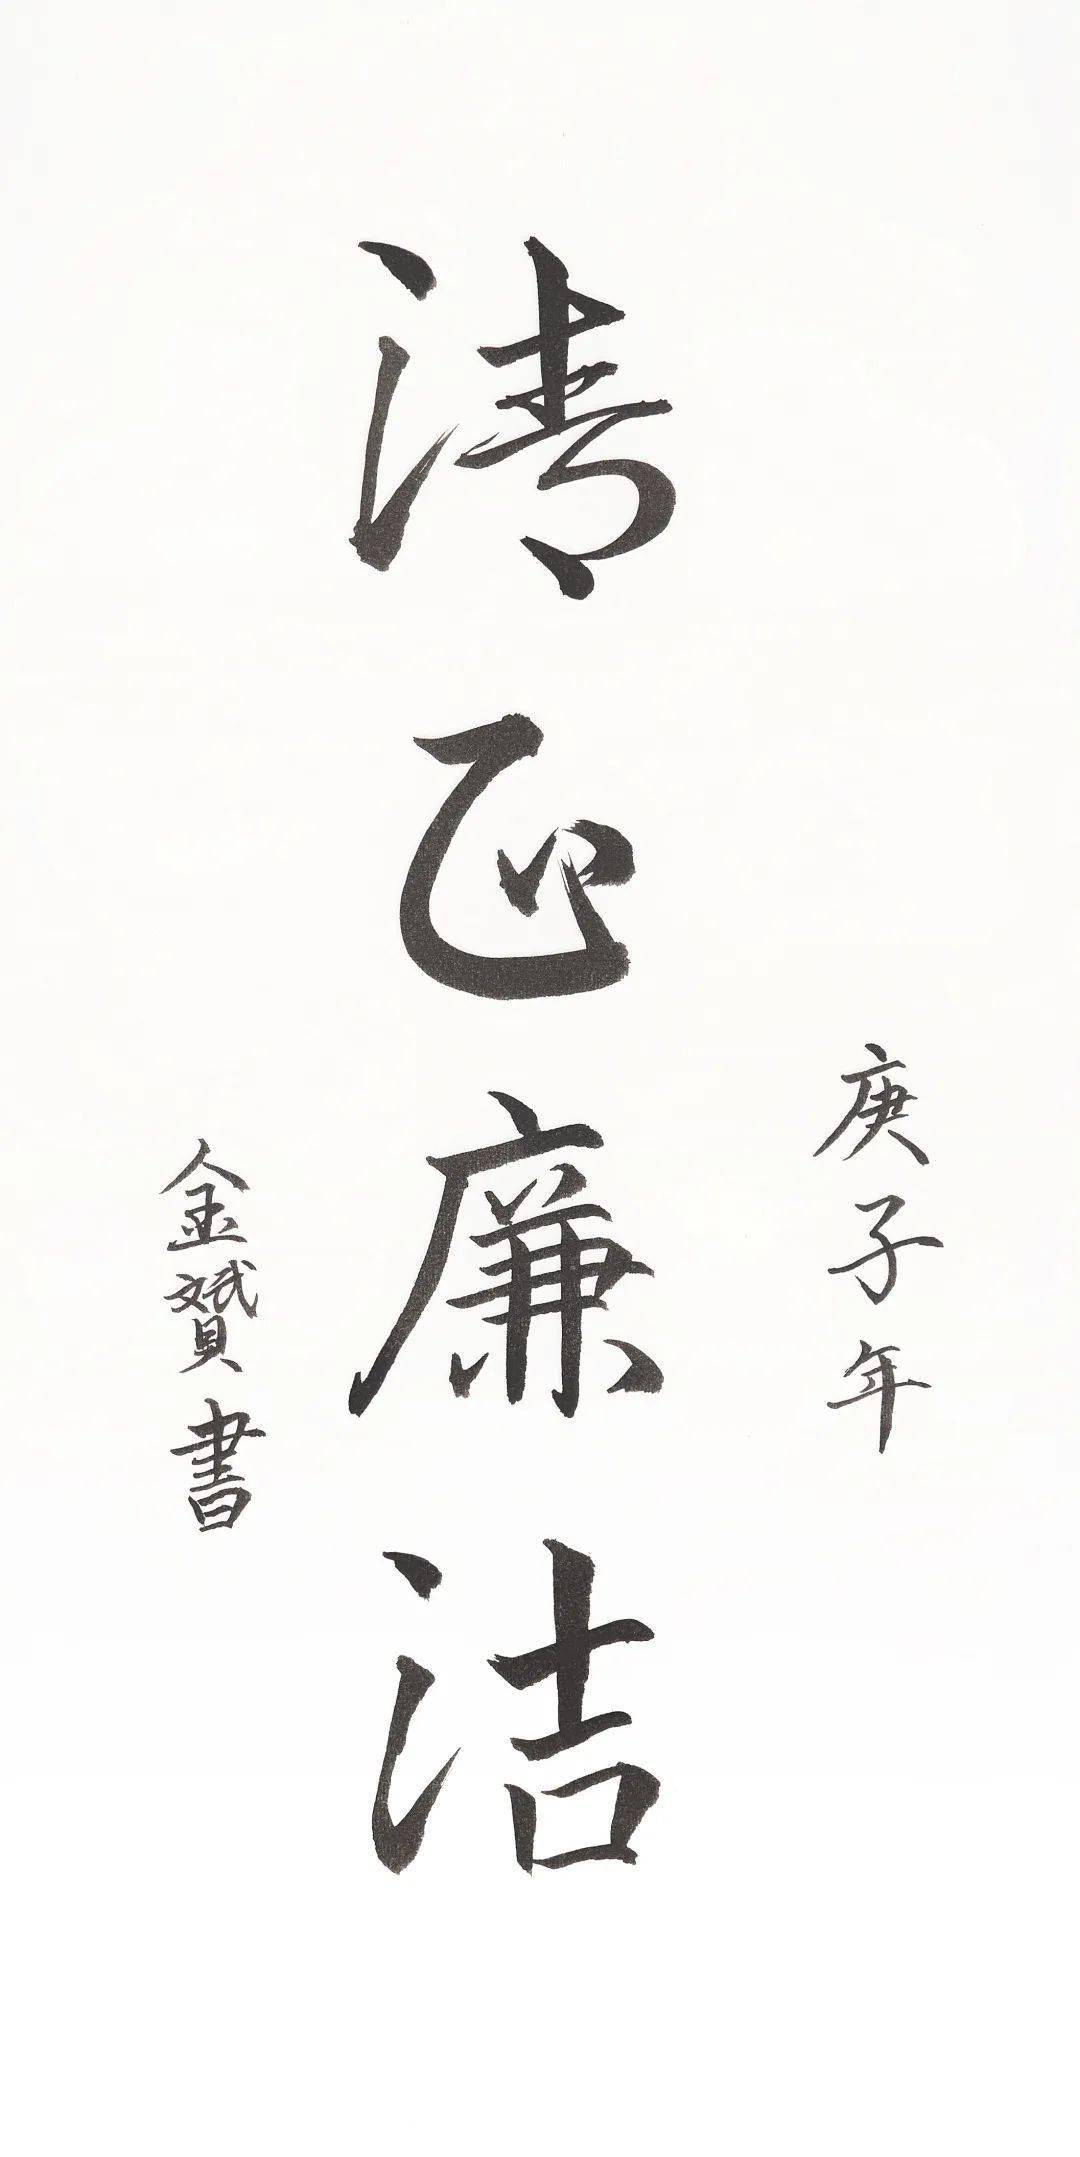 庚子年
清正廉洁
金赟書